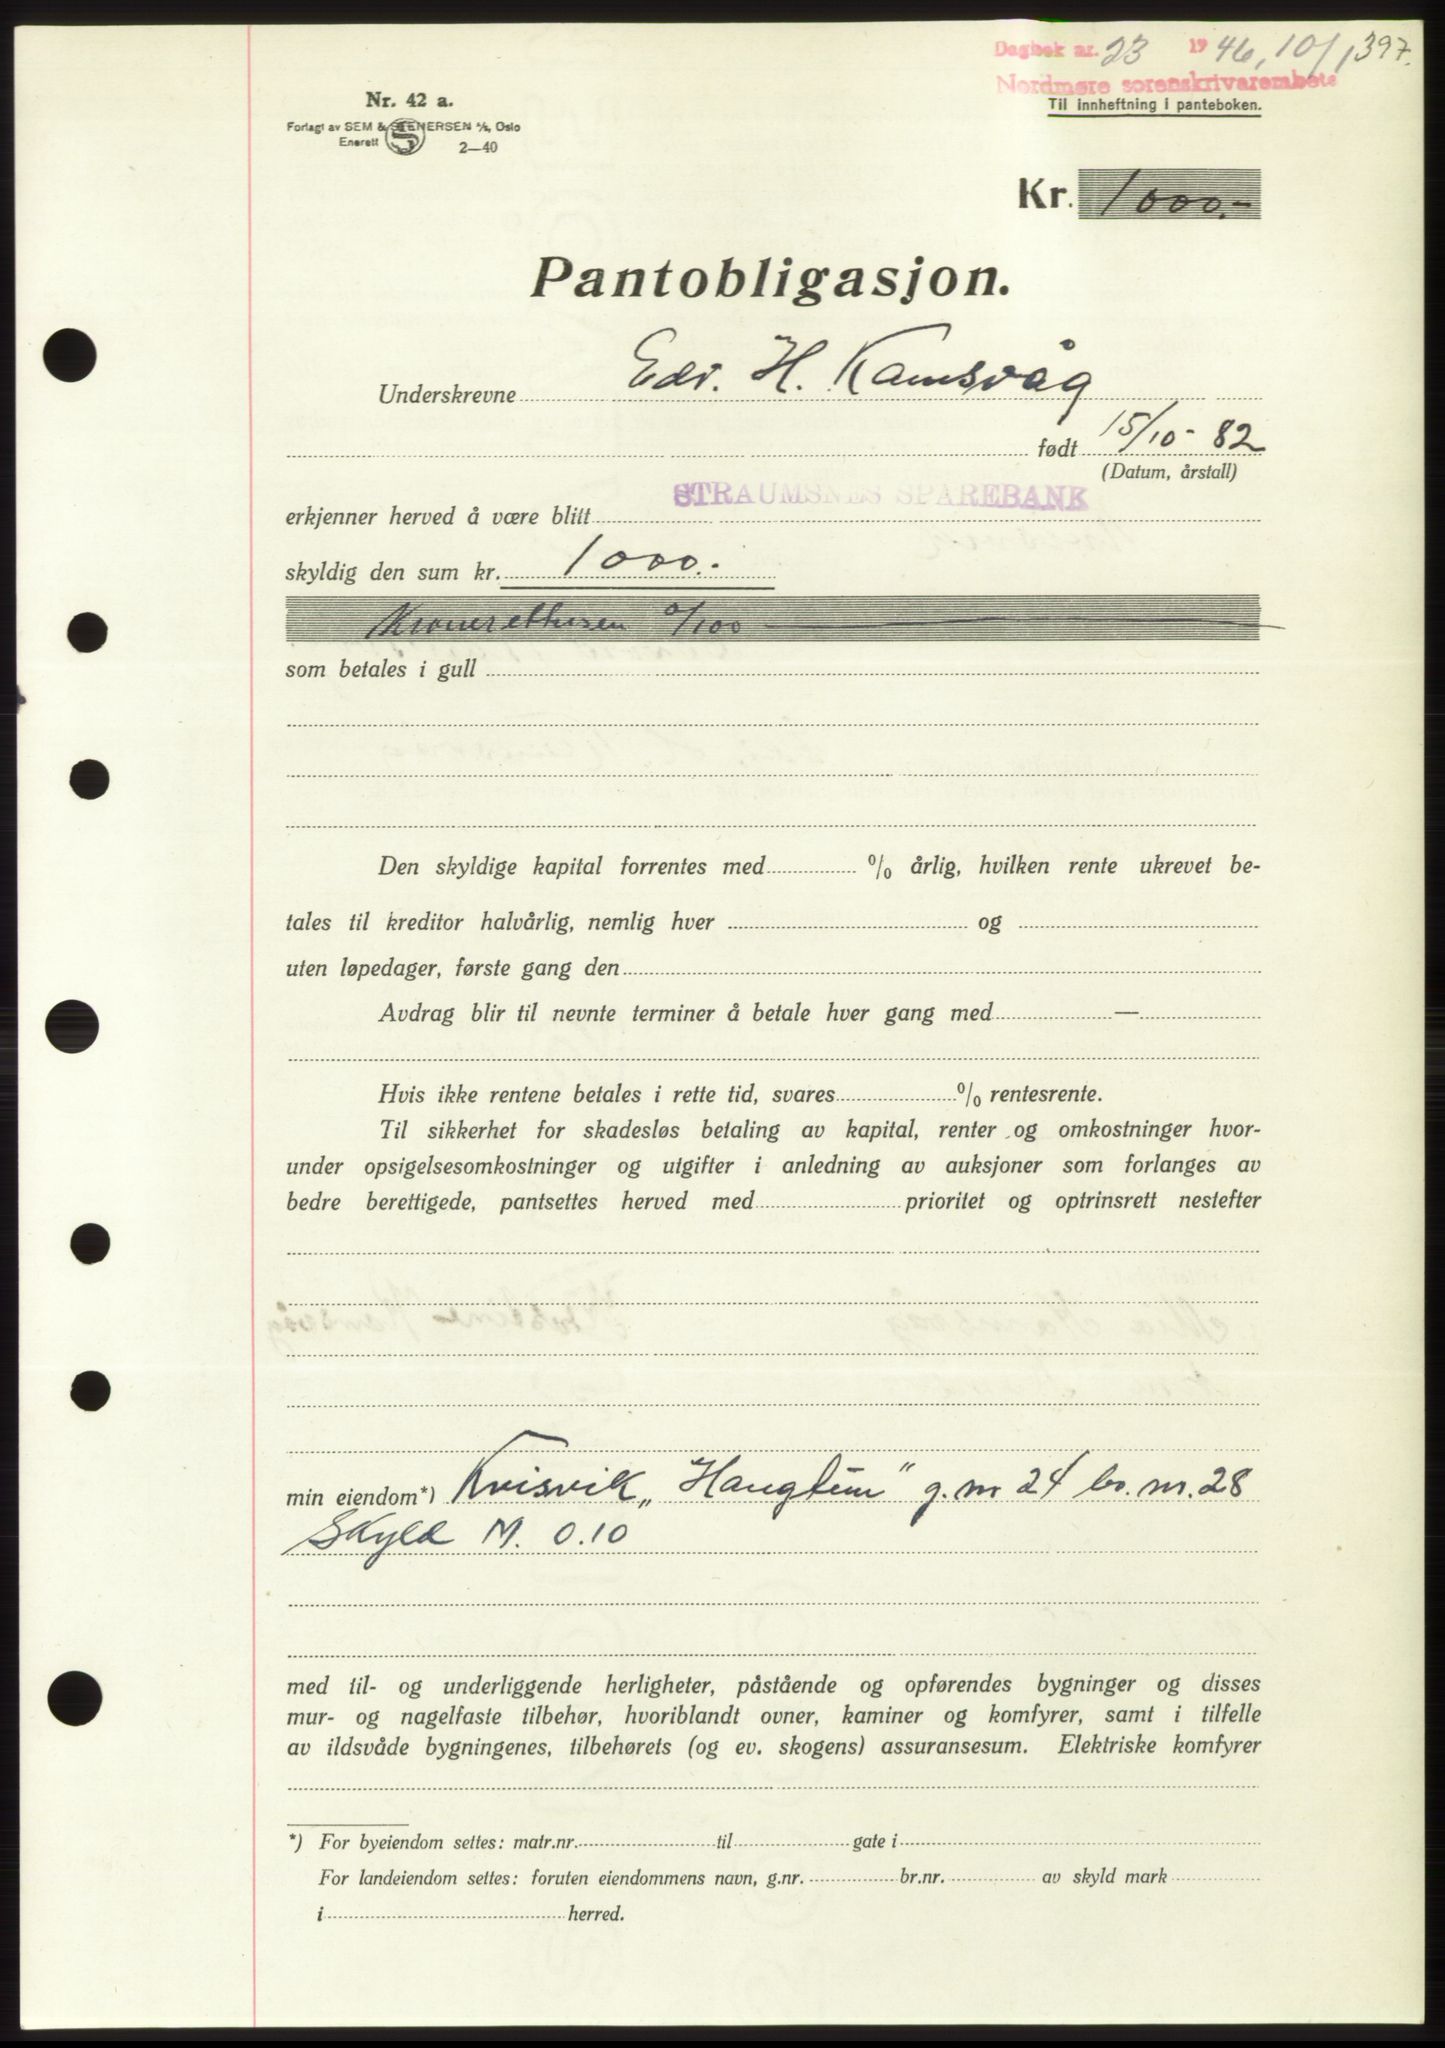 Dagbok nr. 23 1946, 10/1 397.
Nordmøre sorenskrivarembete
Til innheftning i panteboken.
Nr. 42 a.
Forlagt av SEM & STENERSEN A/S, Oslo
Enerett
2—40
Kr. 1000.-
Pantobligasjon.
Underskrevne Edv. H. Kamsvåg
født 15/10- 82
(Datum, årstall)
erkjenner herved å være blitt STRAUMSNES SPAREBANK
skyldig den sum kr. 1000.-
Kroner ettusen 0/100
som betales i gull
Den skyldige kapital forrentes med % årlig, hvilken rente ukrevet be-
tales til kreditor halvårlig, nemlig hver og
uten løpedager, første gang den
Avdrag blir til nevnte terminer å betale hver gang med —
Hvis ikke rentene betales i rette tid, svares % rentesrente.
Til sikkerhet for skadesløs betaling av kapital, renter og omkostninger hvor-
under opsigelsesomkostninger og utgifter i anledning av auksjoner som forlanges av
bedre berettigede, pantsettes herved med prioritet og optrinsrett nestefter
min eiendom*) Kvisvik „Haugtun" g.nr 24 br.nr.28
Skyld M. 0.10
med til- og underliggende herligheter, påstående og opførendes bygninger og disses
mur- og nagelfaste tilbehør, hvoriblandt ovner, kaminer og komfyrer, samt i tilfelle
av ildsvåde bygningenes, tilbehørets (og ev. skogens) assuransesum. Elektriske komfyrer
*) For byeiendom settes: matr.nr. til gate i
For landeiendom settes: foruten eiendommens navn, g.nr. br.nr. av skyld mark
i herred.